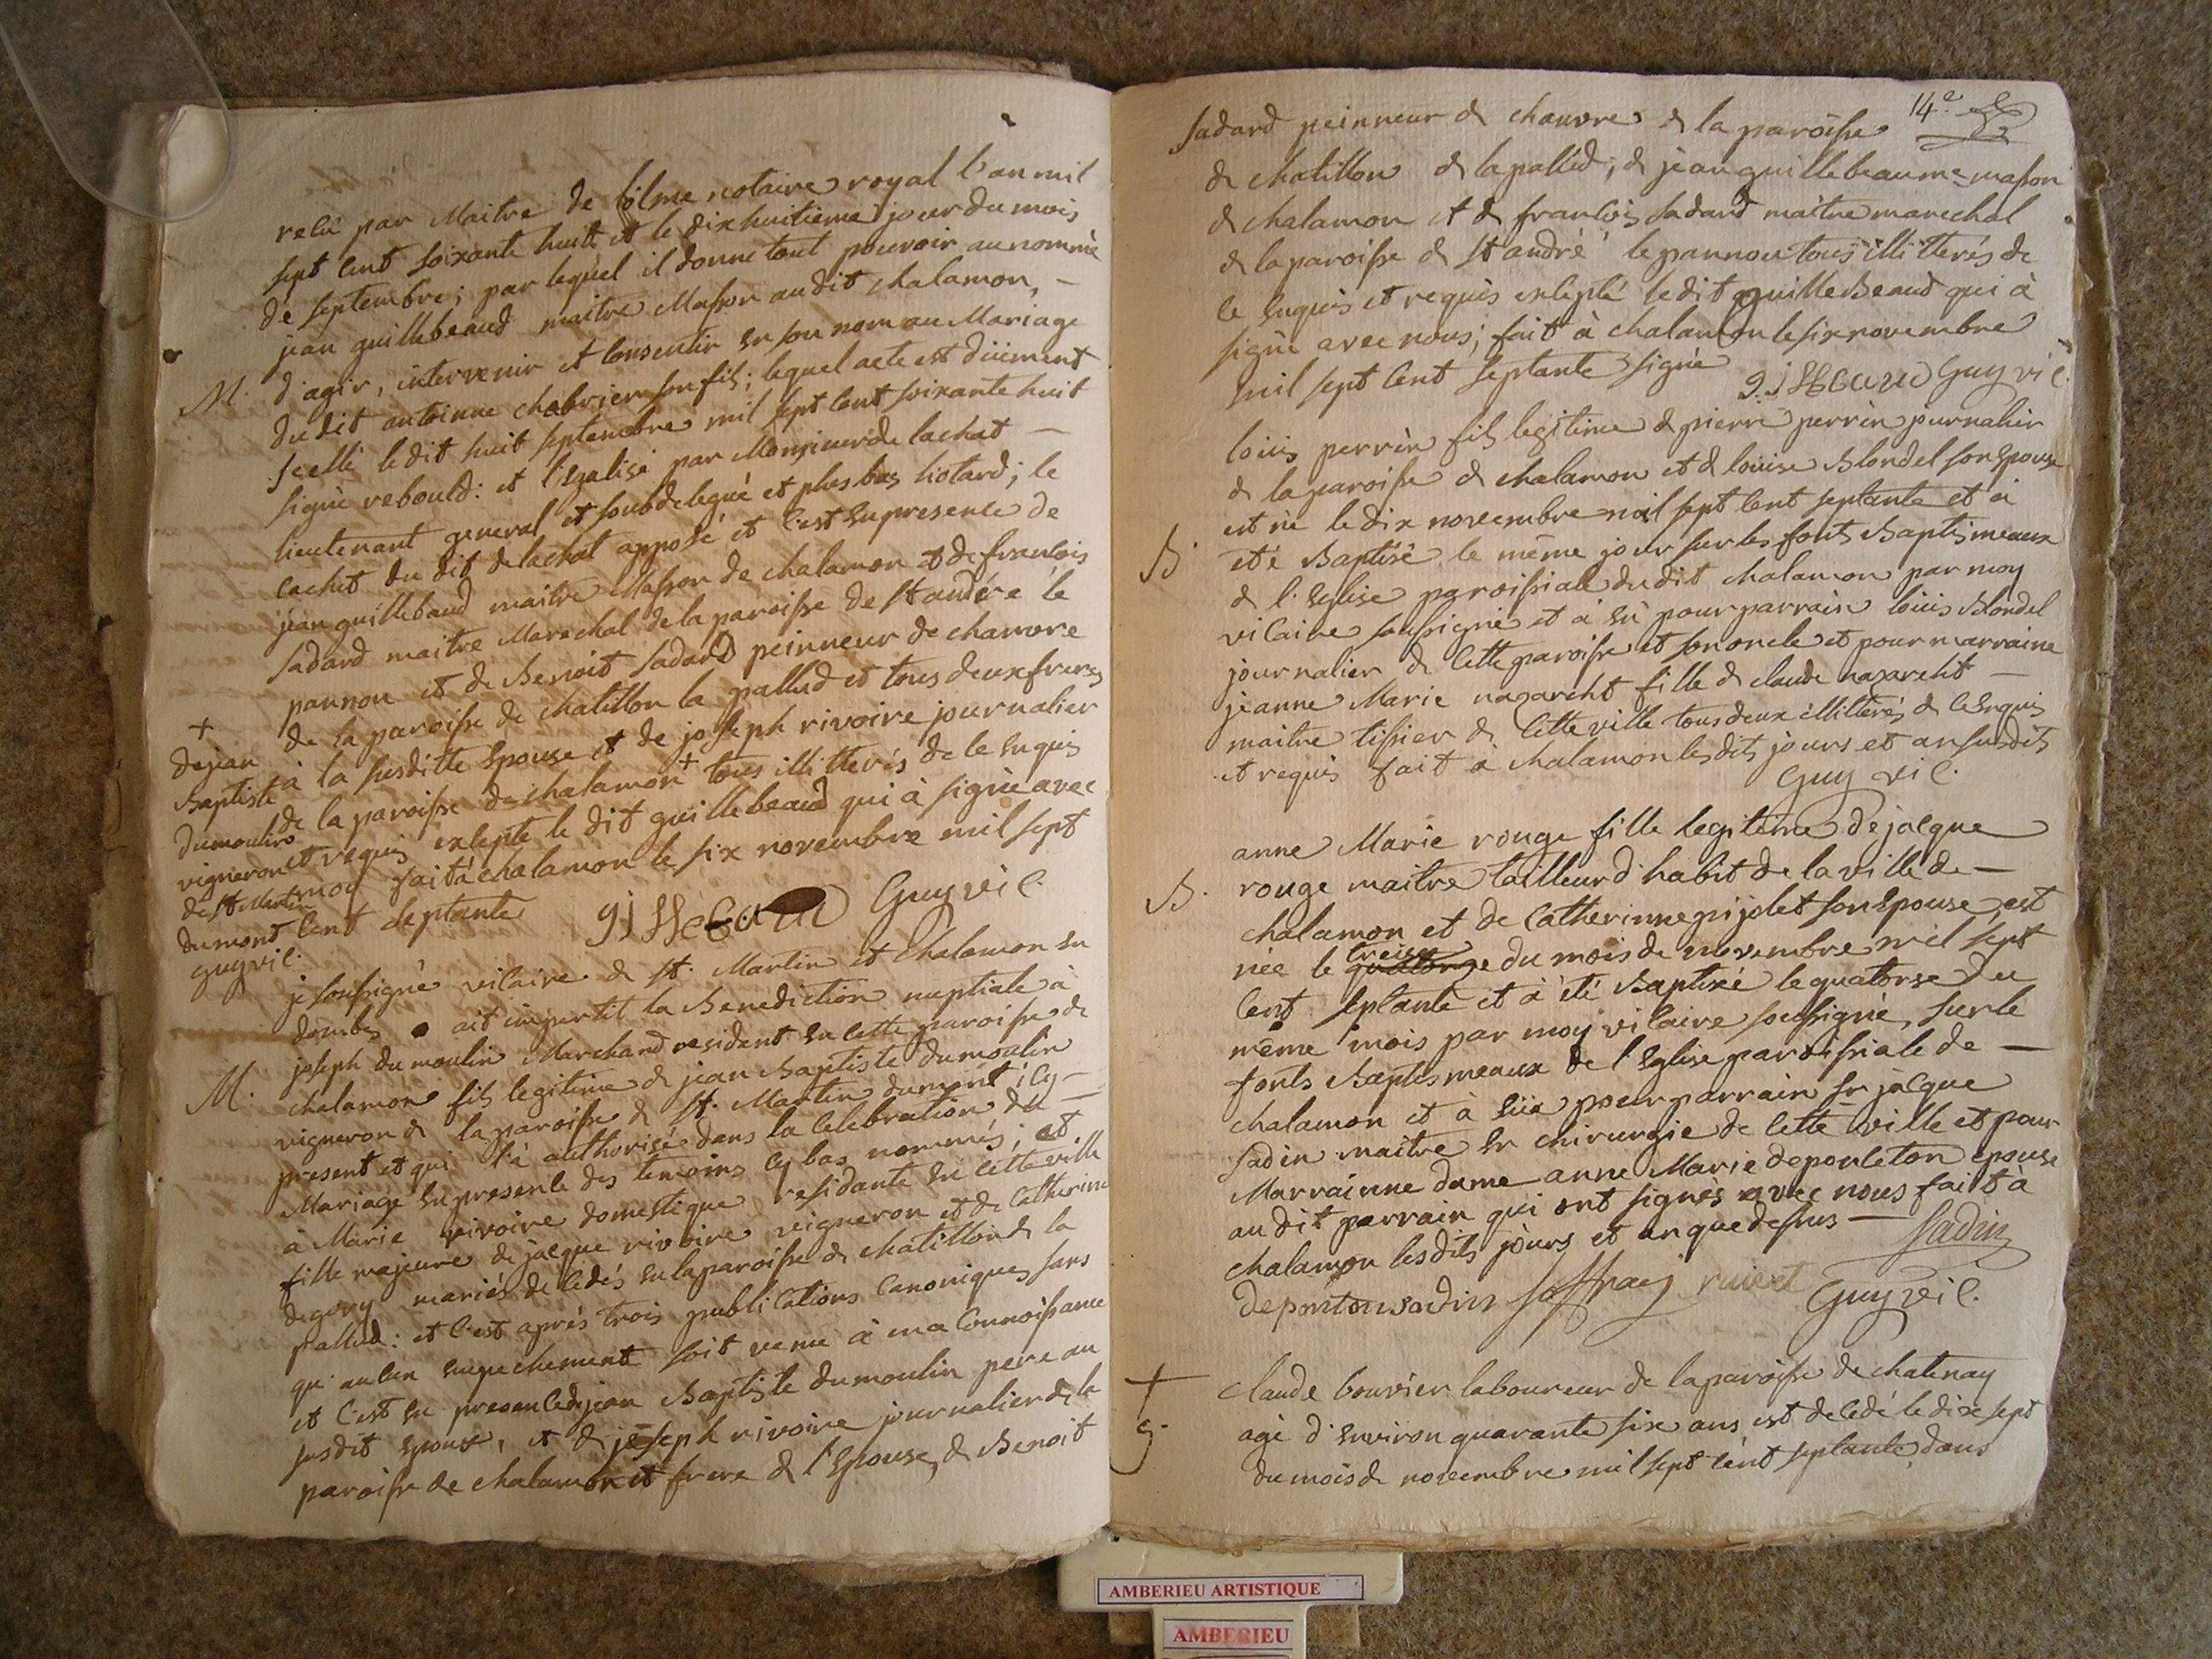 relû par Maitre de lolme notaire royal l'an mil
sept Cent soixante huit et le dixhuitieme jour du mois
de septembre; par lequel il donne tout pouvoir au nommè
jean guillebeaud maitre Masson au dit chalamon, —
M. d'agir, intervenir et Consentir en son nom au Mariage
du dit antoinne chabrier son fils; lequel acte est düement
scellé le dit huit septembre mil sept Cent soixante huit
signè rebould: et légalisé par Monsieur de lachat —
lieutenant general et soubdelegué et plus bas liotard; le
cachet du dit de lachat apposé et C'est en presence de
jean guillebaud maitre Masson de chalamon et de françois
sadard maitre Marechal de la paroisse de st andré le
pannou et de Benoit sadard peinneur de chanvre
de la paroisse de chatillon la pallud et tous deux freres
à la susditte Epouse et de joseph rivoire journalier
de la paroisse de chalamon + tous illitterés de le enquis
et requis exlepté le dit guillebeaud qui à signè avec
moy fait à chalamon le six novembre mil sept
Cent septante
+
de jean
Baptiste
dumoulin
vigneron
de st Martin
dumont
guy vic.
Guy vic.
je soussigné vicaire de st. Martin et Chalamon en
dombes ait impertit la Benediction nuptiale à
joseph du moulin Marchand resident en cette paroisse de
M. chalamon fils legitime de jean Baptiste dumoulin
vigneron de la paroisse de st. Martin dumont icy —
present et qui l'à authorisé dans la Celebration du —
Mariage en presence des temoins cy bas nommés; et
à Marie rivoire domestique residante en cette ville
fille majeure de jacque rivoire vigneron et de Catherine
degory mariés deCedés en la paroisse de chatillon de la
pallud: et C'est après trois publications Canoniques sans
qu'auCun empechement soit venu à ma Connoissance
et C'est en presence de jean Baptiste dumoulin pere au
susdit epoux, et de joseph rivoire journalier de la
paroisse de chalamon et frere de l'Epouse, de Benoit
14e
sadard peinneur de chanvre de la paroisse
de chatillon de la pallud, de jean guillebeaume mason
de chalamon et de françois sadard maitre marechal
de la paroisse de st andré le pannou tous illitterés de
le enquis et requis exlepté le dit guillebeaud qui à
signè avec nous; fait à chalamon le six novembre
mil sept Cent septante signè
Guy vic.
loüis perrin fils legitime de pierre perrin journalier
de la paroisse de chalamon et de loüise Blondel son Epouse
est nè le dix novembre mil sept Cent septante et à
B. eté Baptisé le même jour sur les fonts Baptismeaux
de l'Eglise paroissiale du dit chalamon par moy
vicaire soussignè et à eu pour parrain loüis Blondel
journalier de Cette paroisse et son oncle et pour marraine
jeanne Marie nazareht fille de claude nazareht —
maitre tissier de Cette ville tous deux illitterés de le enquis
et requis fait à chalamon les dits jours et an susdits
Guy vic.
anne Marie rouge fille legitime de jacque
B. rouge maitre tailleur d'habit de la ville de —
chalamon et de Catherinne pijolet son Epouse est
treise
née le quatorze du mois de novembre mil sept
Cent septante et à été Baptisé le quatorse du
même mois par moy vicaire soussignè, sur le
fonts Baptismeaux de l'Eglise paroissiale de —
chalamon et à eüe pour parrain sr jacque
sadin maitre en chirurgie de Cette ville et pour
Marrainne dame anne Marie deponleton epouse
au dit parrain qui ont signès avec nous fait à
chalamon les dits jours et an que dessus — sadin
deponton sadin joffray ruivet Guy vic.
+ claude bouvier laboureur de la paroisse de chatenay
agé d'environ quarante six ans est deCedé le dix sept
du mois de novembre mil sept Cent septante, dans
AMBERIEU ARTISTIQUE
AMBERIEU